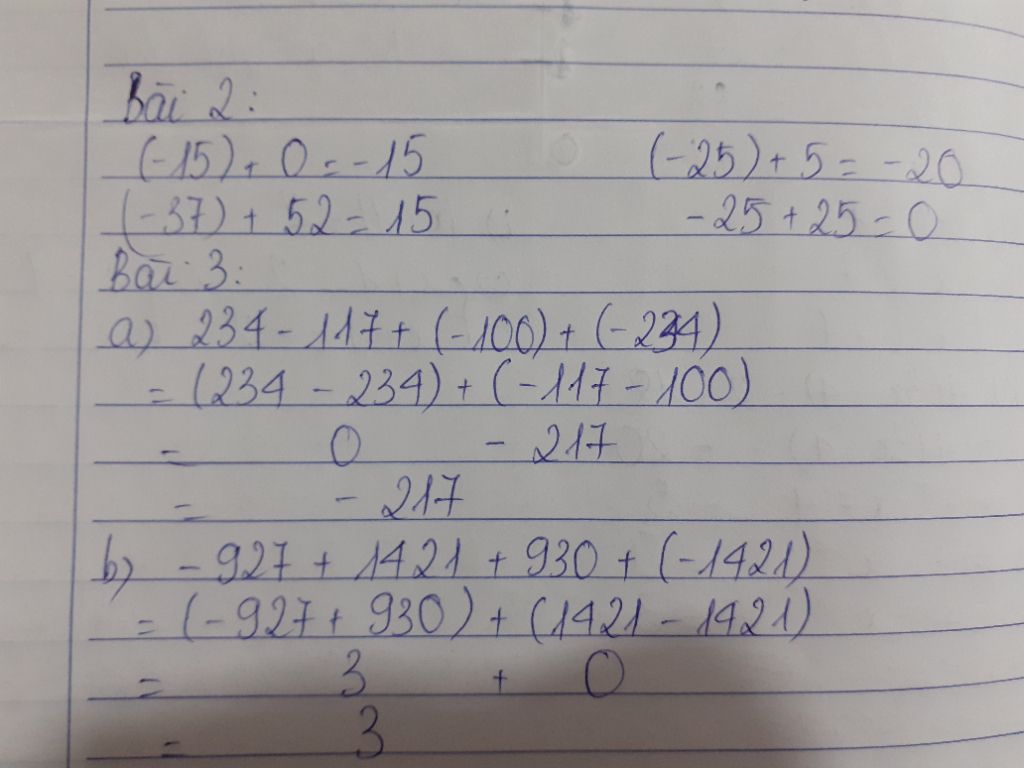 Bài 2:
(-15) + 0 = -15 (-25) + 5 = -20
(-37) + 52 = 15 -25 + 25 = 0
Bài 3:
a) 234 - 117 + (-100) + (-234)
= (234 - 234) + (-117 - 100)
= 0 - 217
= - 217
b) - 927 + 1421 + 930 + (-1421)
= (-927 + 930) + (1421 - 1421)
= 3 + 0
= 3